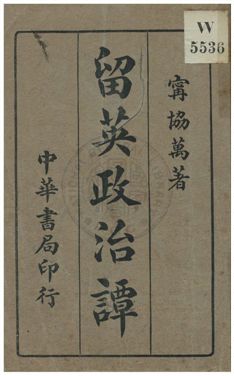 W
5536
寗協萬著
留英政治譚
中華書局印行